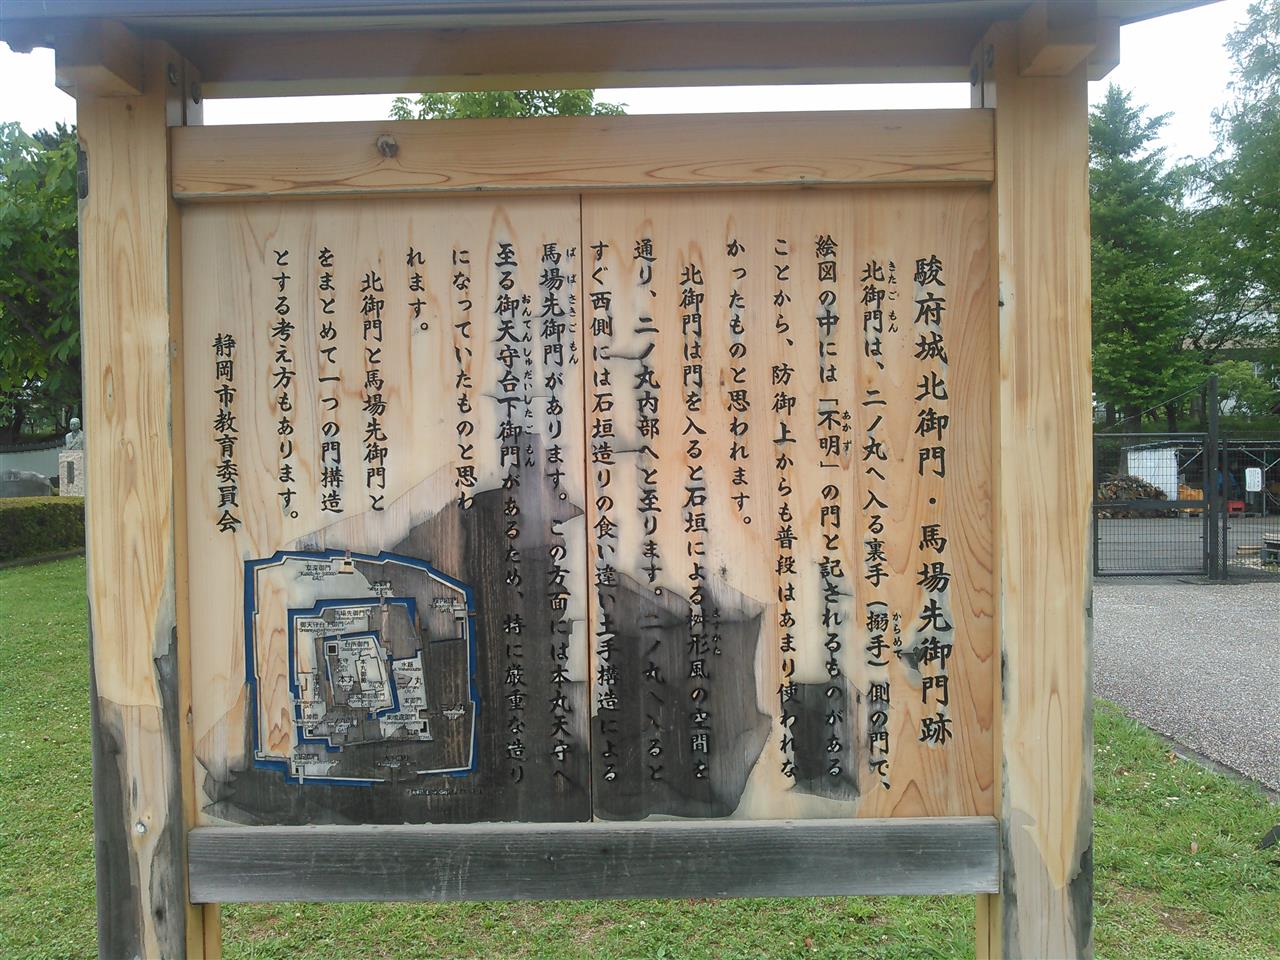 駿府城北御門・馬場先御門跡
北御門は、二ノ丸へ入る裏手(搦手)側の門で、
きたごもん
からめて
絵図の中には「不明」の門と記されるものがある
あかず
ことから、防御上からも普段はあまり使われな
かったものと思われます。
北御門は門を入ると石垣による桝形風の空間を
ますがた
通り、二ノ丸内部へと至ります。二ノ丸へ入ると
すぐ西側には石垣造りの食い違い土手構造による
馬場先御門があります。この方面には本丸天守へ
ばばさきごもん
至る御天守台下御門があるため、特に厳重な造り
おんてんしゅだいしたごもん
になっていたものと思わ
れます。
北御門と馬場先御門と
をまとめて一つの門構造
とする考え方もあります。
静岡市教育委員会
草深御門
馬場先御門
御天守台下御門
台所御門
天守
本丸
水路
二ノ丸